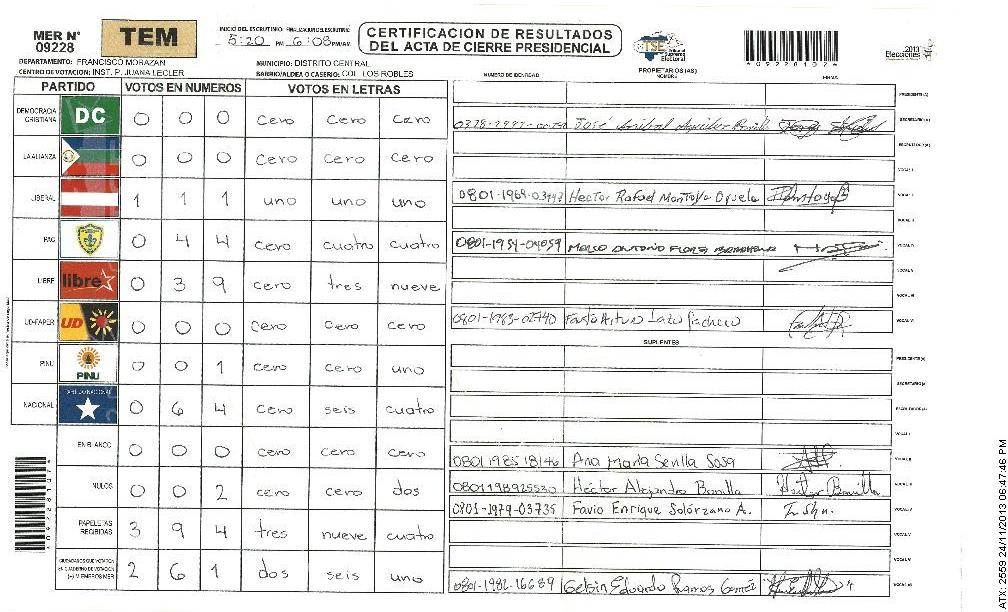 MER N° 09228
TEM
INICIO DEL ESCRUTINIO FINALIZACION DEL ESCRUTINIO
5:20 PM 6:08 PM/AM
CERTIFICACION DE RESULTADOS
DEL ACTA DE CIERRE PRESIDENCIAL
TSE Tribunal Supremo Electoral
Elecciones 2013
DEPARTAMENTO: FRANCISCO MORAZAN
MUNICIPIO: DISTRITO CENTRAL
CENTRO DE VOTACION: INST. P. JUANA LECLER
BARRIO/ALDEA O CASERIO: COL. LOS ROBLES
NUMERO DE IDENTIDAD
PROPIETARIOS (AS)
NOMBRE
FIRMA
PARTIDO VOTOS EN NUMEROS VOTOS EN LETRAS
PRESIDENTE (A)
DEMOCRACIA CRISTIANA DC 0 0 0 cero cero cero
José Anibal Aguilar Bonilla
SECRETARIO (A)
LA ALIANZA 0 0 0 cero cero cero
ESCRUTADOR (A)
VOCAL I
LIBERAL 1 1 1 uno uno uno
0801-1969- Hector Rafael Montoya
PAC 0 4 4 cero cuatro cuatro
0801-1954-04059 Marco Antonio Flores
LIBRE libre 0 3 9 cero tres nueve
UD-FAPER UD 0 0 0 cero cero cero
0801-1963-02740 Favio Arturo Lazo Pacheco
SUPLENTES
PINU PINU 0 0 1 cero cero uno
PRESIDENTE (A)
SECRETARIO (A)
NACIONAL PARTIDO NACIONAL 0 6 4 cero seis cuatro
ESCRUTADOR (A)
EN BLANCO 0 0 0 cero cero cero
0801 1985 18146 Ana Maria Sevilla Sosa
NULOS 0 0 2 cero cero dos
0801198925530 Héctor Alejandro Bonilla Hector Bonilla
0801-1979-03735 Favio Enrique Solórzano A.
PAPELETAS RECIBIDAS 3 9 4 tres nueve cuatro
CIUDADANOS QUE VOTARON EN CUADERNO DE VOTACION (+) MIEMBROS MER 2 6 1 dos seis uno
0801-1982-16689 Gelsin Eduardo Ramos Gomez
ATX-2559 24/11/2013 06:47:46 PM